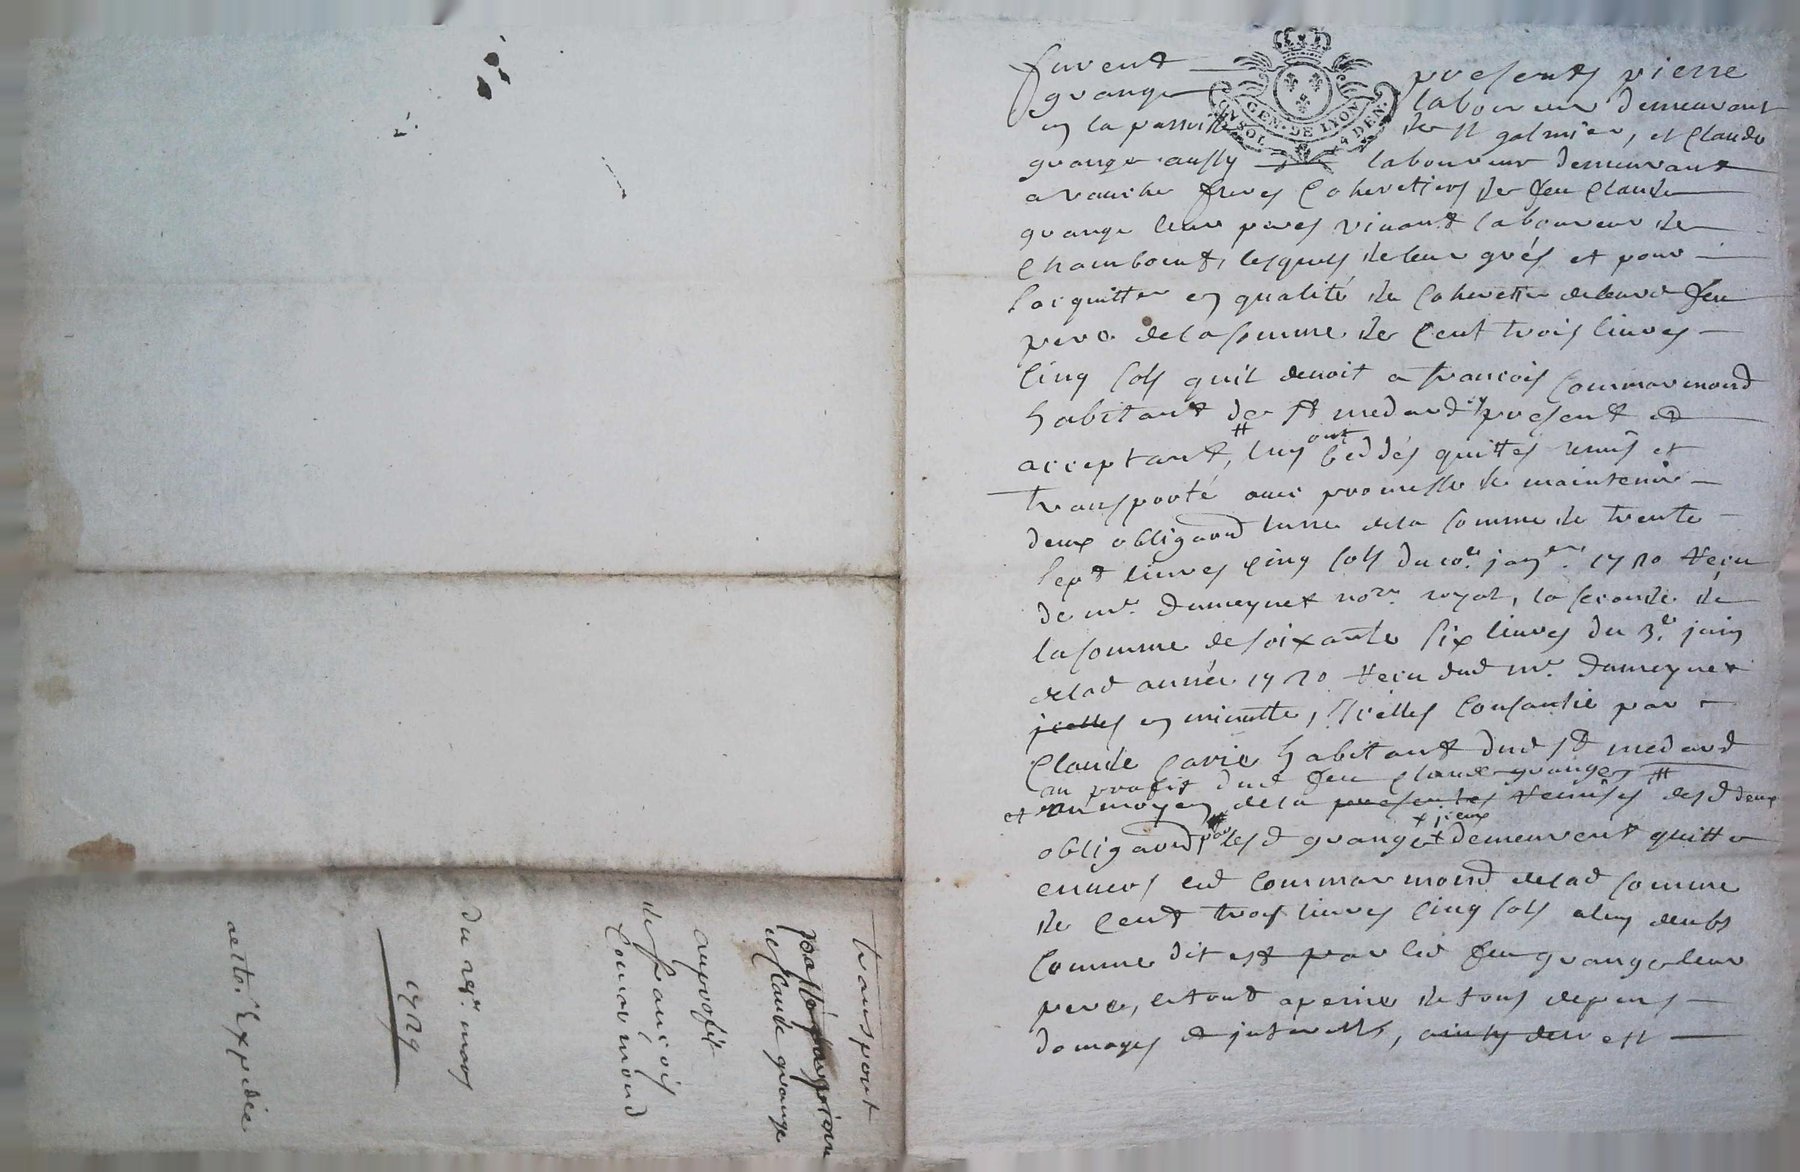 furent presents pierre
grange laboureur demeurant
en la parroisse de st galmier, et Claude
grange aussy laboureur demeurant
a vauche freres Coheretiers de feu Claude
grange leur peres vivant laboureur de
Chambouet, lesquels de leur grés et pour
sacquitter en qualité de Coheretier de leurd feu
pere de la somme de Cent trois livres
Cinq sols quil devoit a francois Commarmond
habitant de st medard icy present et
acceptant, luy ont Ceddés quittés remis et
transporté avec promesse de maintenir
deux obligaond lune de la somme de trente
sept livres Cinq sols du 10e janer 1720 Receu
de mr. Dumeynet nore royal, la seconde de
la somme de soixante six livres du 3e juin
delad année 1720 Receu dud mr. Dumeynet
jcelles en minutte, Jcelles Consantie par
Claude Carie habitant dud st medard
au profit dud feu Claude grange
et au moyen de la presentes remises desd deux
obligaond par lesd grange jceux demeurent quitte
envers led Commarmond delad somme
de Cent trois livres Cinq sols a luy deubs
Comme dit est par led feu grange leur
pere, le tout a peine de tous depens
domages et interests, ainsy est
transport
passé par pierre
et Claude grange
au profit
de francois
Comarmond
du mars
1729
Expediée